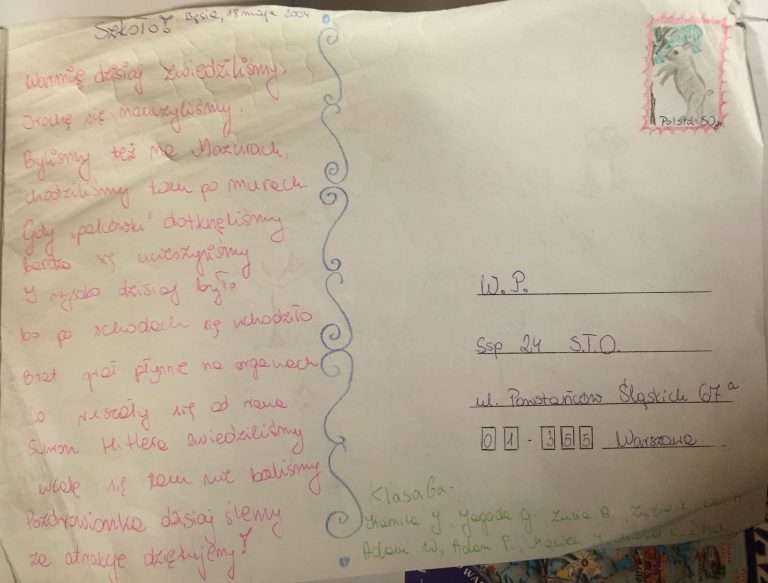 Szkoło! Bęsia, 18 maja 2004
Warmię dzisiaj zwiedziliśmy,
Trochę się nauczyliśmy.
Byliśmy też na Mazurach,
chodziliśmy tam po murach
Gdy "palcówki" dotknęliśmy
bardzo się ucieszyliśmy
I wysoko dzisiaj było
bo po schodach się wchodziło
Brat grał płynnie na organach
Co ruszały się od rana
Schron Hitlera zwiedziliśmy
wcale się tam nie baliśmy
Pozdrowionka dzisiaj ślemy
za atrakcje dziękujemy!
Polska 50gr
W. P.
Ssp 24 S.T.O.
ul. Powstańców Śląskich 67a
01-355 Warszawa
Klasa 6a.
Kamila J, Jagoda G, Zuzia B, Zuzia
Adam W, Adam P, Maciek